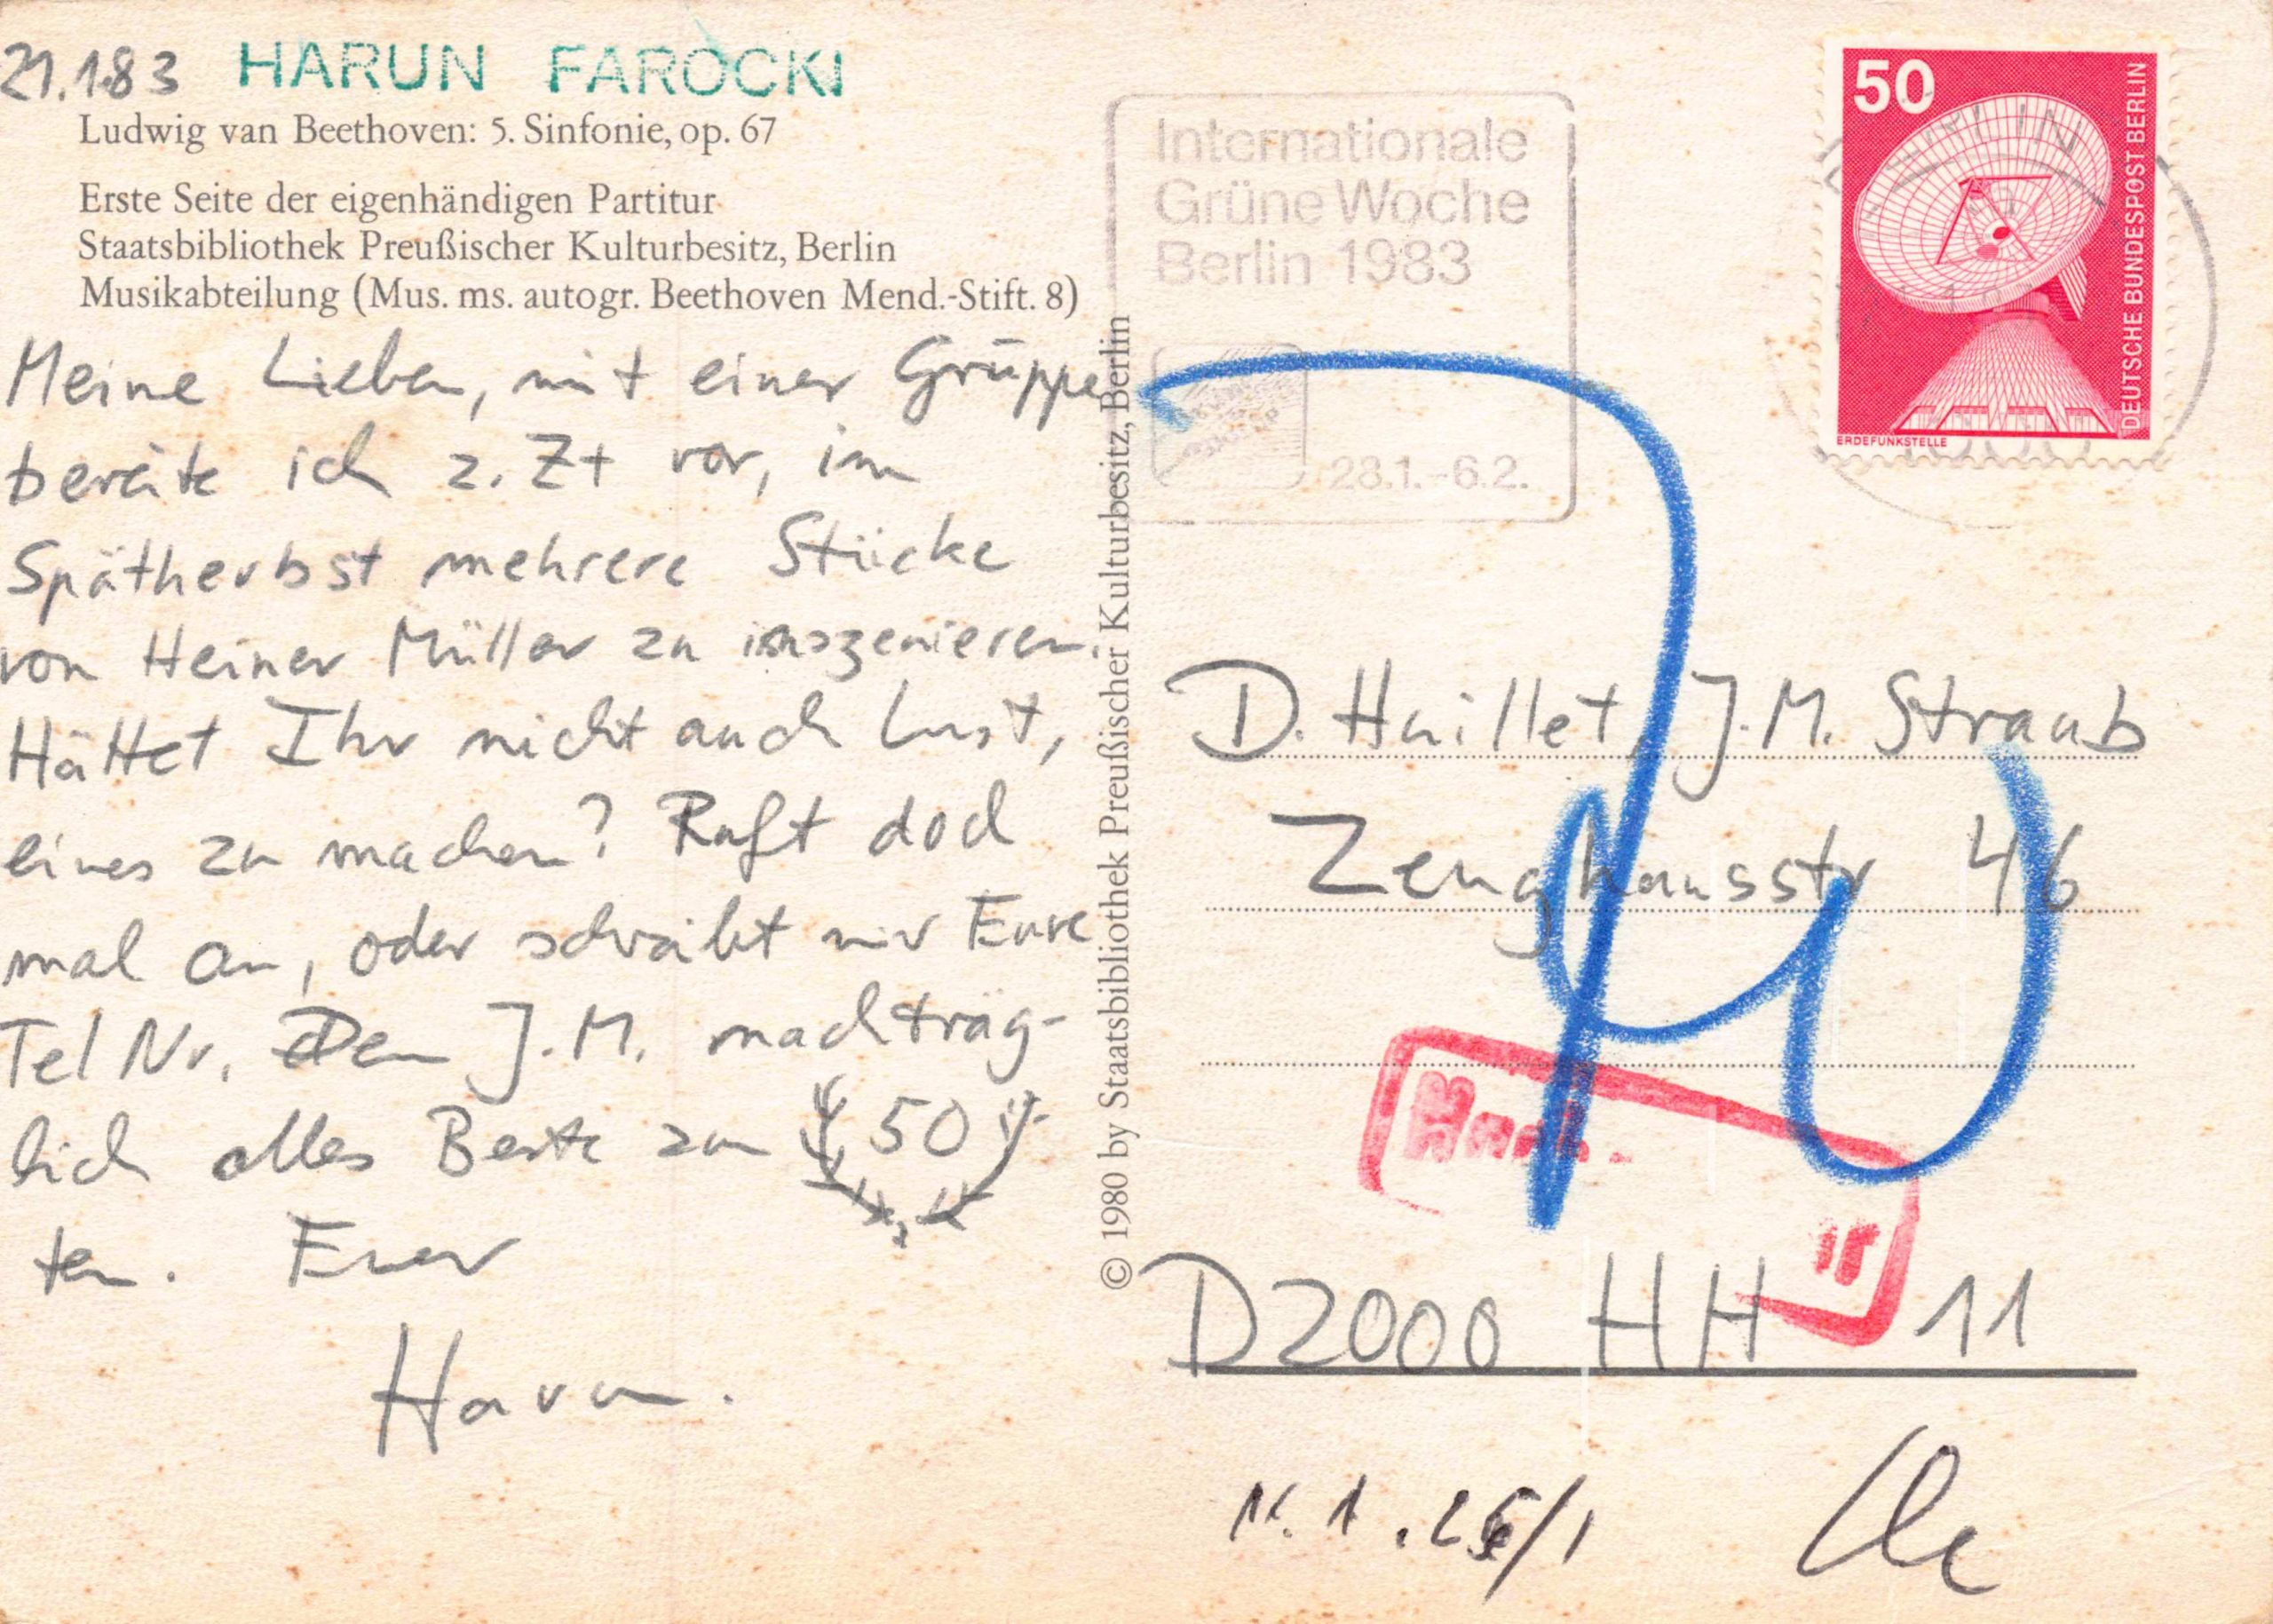 21.1.83 HARUN FAROCKI
Ludwig van Beethoven: 5. Sinfonie, op. 67
Erste Seite der eigenhändigen Partitur
Staatsbibliothek Preußischer Kulturbesitz, Berlin
Musikabteilung (Mus. ms. autogr. Beethoven Mend.-Stift. 8)
Meine Lieben, mit einer Gruppe
bereite ich z. Zt vor, im
Spätherbst mehrere Stücke
von Heiner Müller zu inszenieren.
Hättet Ihr nicht auch Lust,
eines zu machen? Ruft doch
mal an, oder schreibt mir Eure
Tel Nr. Dem J.M. nachträg-
lich alles Beste zum 50
ten. Euer
Harun.
© 1980 by Staatsbibliothek Preußischer Kulturbesitz, Berlin
Internationale
Grüne Woche
Berlin 1983
28.1.-6.2.
50
DEUTSCHE BUNDESPOST BERLIN
ERDEFUNKSTELLE
BERLIN
D. Huillet, J.M. Straub
Zeughausstr 46
D2000 HH 11